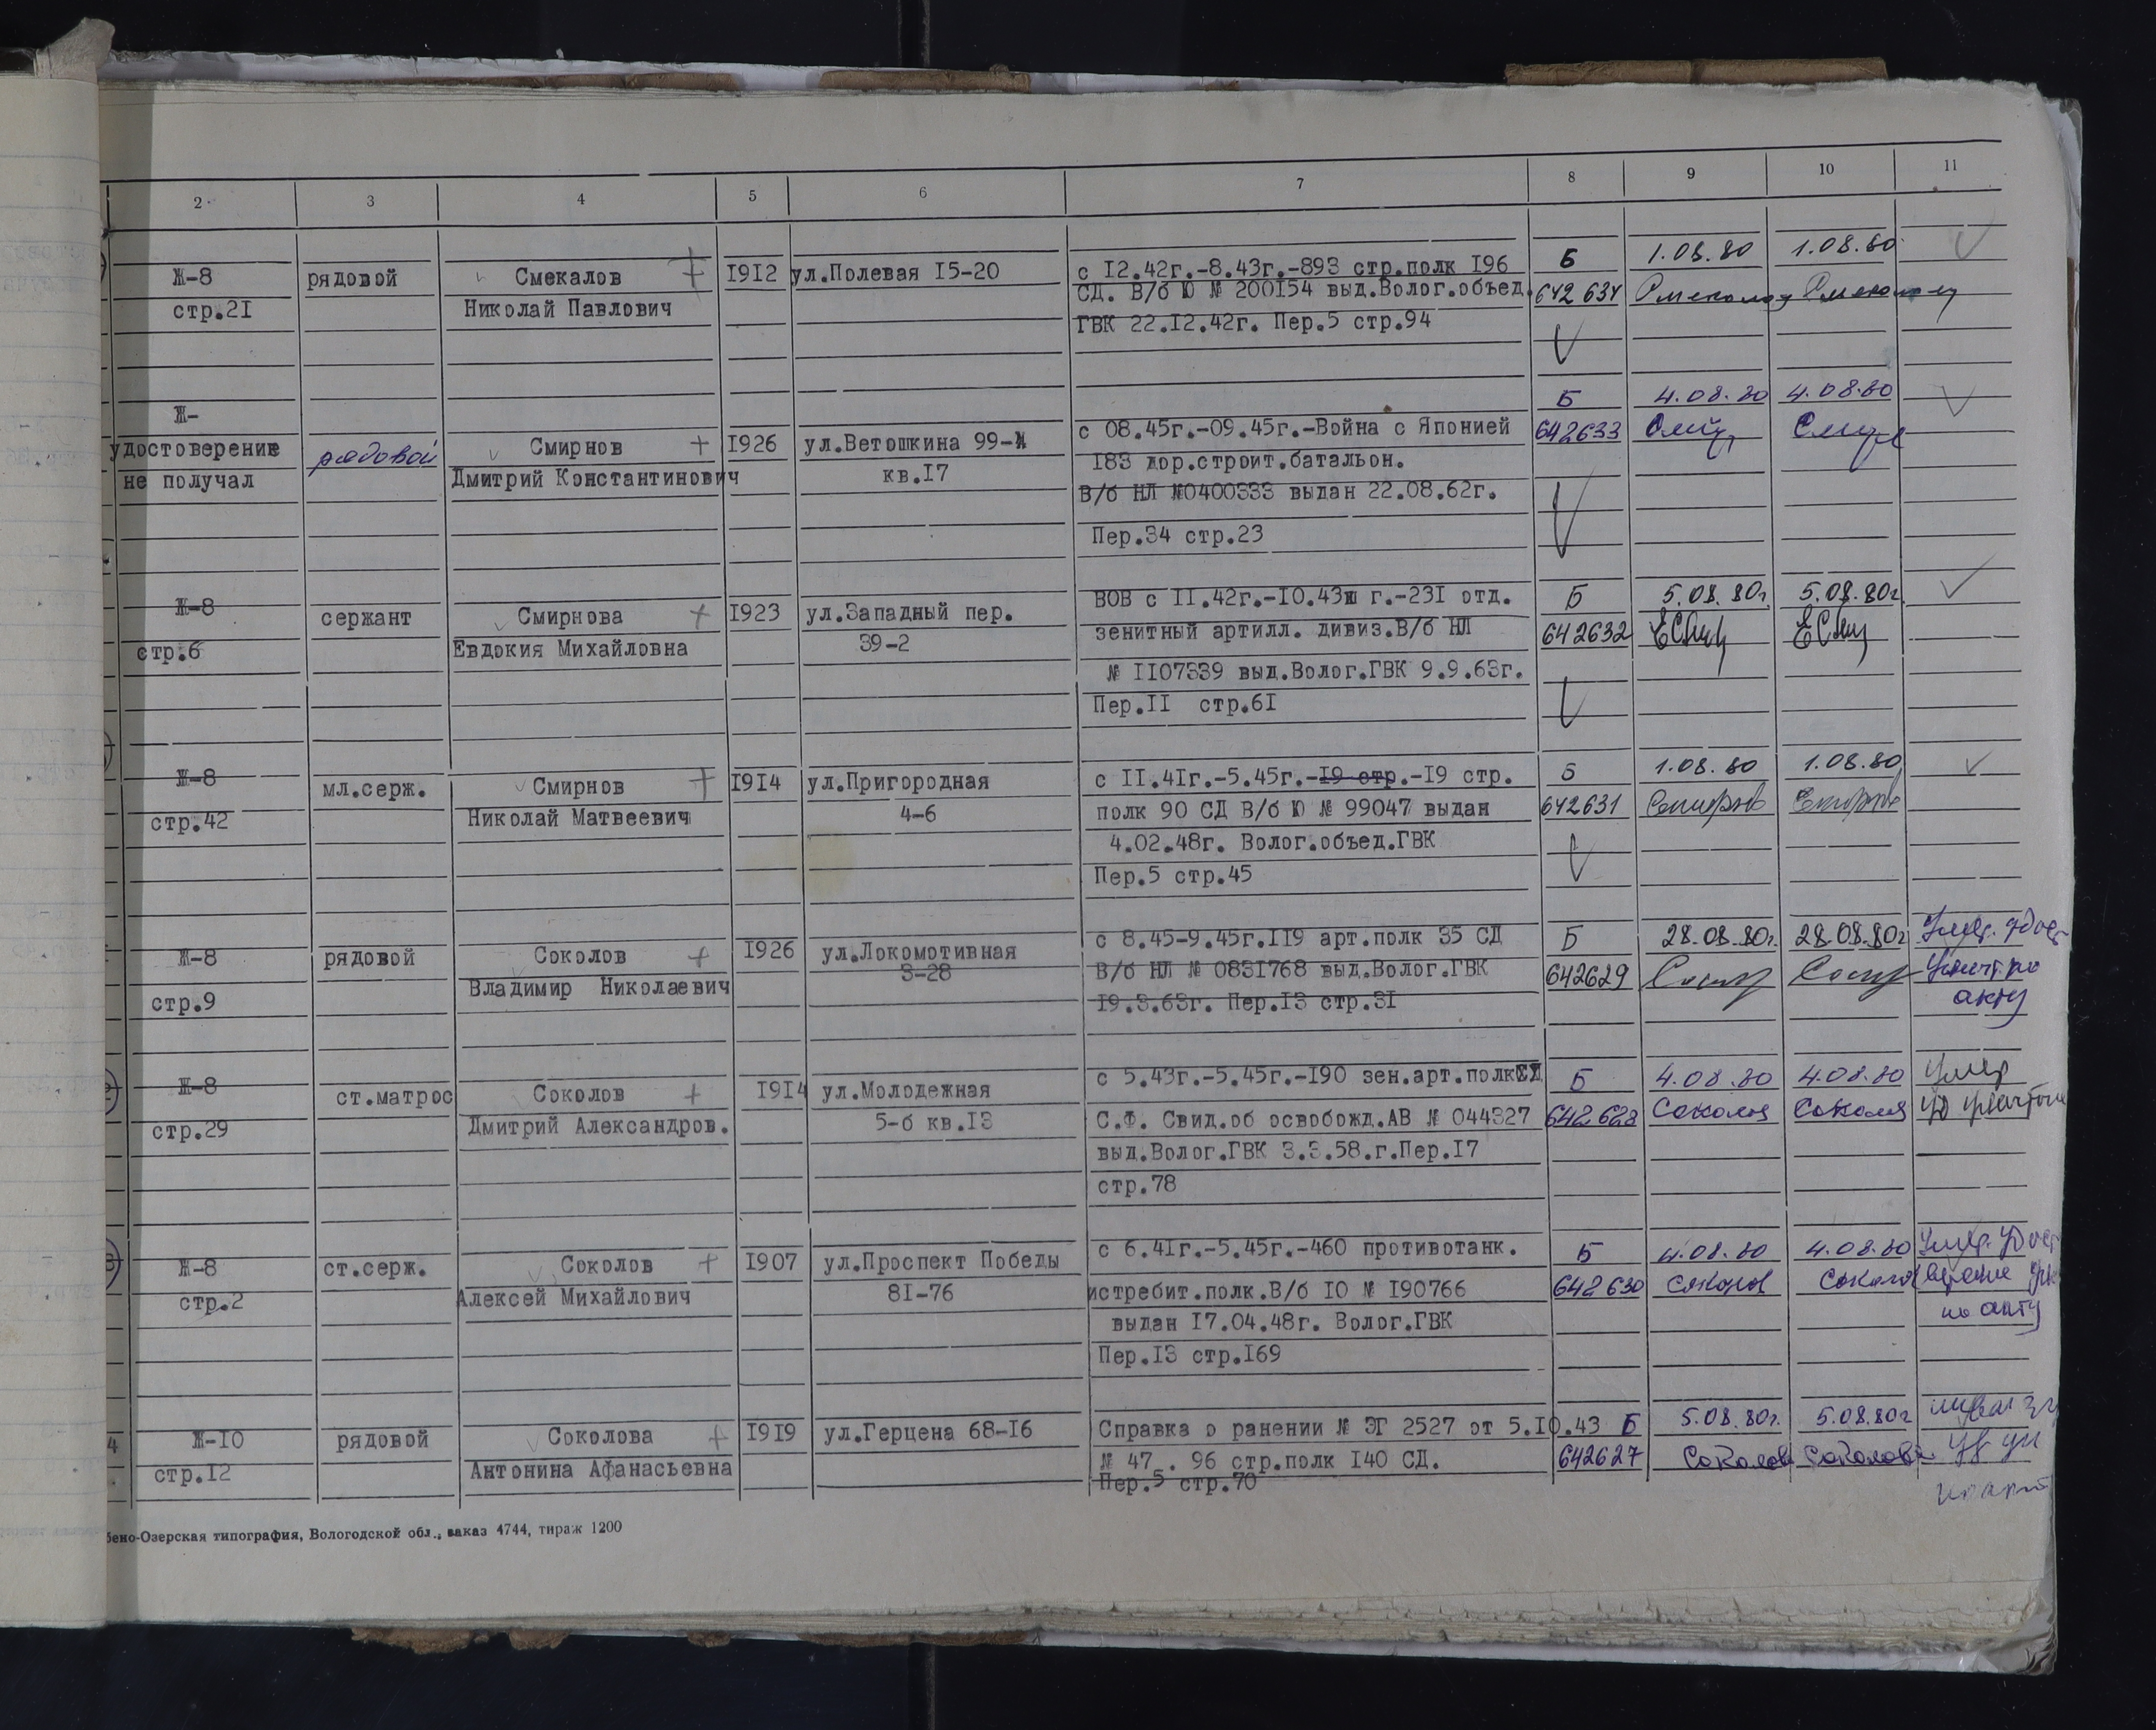 2 3 4 5 6 7 8 9 10 11
Ж-8 рядовой Смекалов 1912 ул.Полевая 15-20 с 12.42г.-8.43г.-893 стр.полк 196 Б 1.08.80 1.08.80
стр.21 Николай Павлович СД. В/б Ю № 200154 выд.Волог.объед. 642 634
ГВК 22.12.42г. Пер.5 стр.94
Ж- Б 4.08.80 4.08.80
удостоверение рядовой Смирнов 1926 ул.Ветошкина 99- с 08.45г.-09.45г.-Война с Японией 642633
не получал Дмитрий Константинович кв.17 183 дор.строит.батальон.
В/б НЛ №0400333 выдан 22.08.62г.
Пер.34 стр.23
Ж-8 сержант Смирнова 1923 ул.Западный пер. ВОВ с 11.42г.-10.43ш г.-231 отд. Б 5.08.80г. 5.08.80г.
стр.6 Евдокия Михайловна 39-2 зенитный артилл. дивиз.В/б НЛ 642632
№ 1107339 выд.Волог.ГВК 9.9.63г.
Пер.11 стр.61
Ж-8 мл.серж. Смирнов 1914 ул.Пригородная с 11.41г.-5.45г.-19 стр.-19 стр. Б 1.08.80 1.08.80
стр.42 Николай Матвеевич 4-6 полк 90 СД В/б Ю № 99047 выдан 642631 Смирнов Смирнов
4.02.48г. Волог.объед.ГВК
Пер.5 стр.45
Ж-8 рядовой Соколов 1926 ул.Локомотивная с 8.45-9.45г.119 арт.полк 35 СД Б 28.08.80г. 28.08.80г. Умер. удост
стр.9 Владимир Николаевич 3-28 В/б НЛ № 0831768 выд.Волог.ГВК 642629 уничт.по
19.3.63г. Пер.13 стр.31 акту
Ж-8 ст.матрос Соколов 1914 ул.Молодежная с 5.43г.-5.45г.-190 зен.арт.полк Б 4.08.80 4.08.80 Умер
стр.29 Дмитрий Александров. 5-б кв.13 С.Ф. Свид.об освобожд.АВ № 044327 642628 Соколов Соколов
выд.Волог.ГВК 3.3.58.г.Пер.17
стр.78
Ж-8 ст.серж. Соколов 1907 ул.Проспект Победы с 6.41г.-5.45г.-460 противотанк. Б 4.08.80 4.08.80 Умер. удост
стр.2 Алексей Михайлович 81-76 истребит.полк.В/б Ю № 190766 642630 Соколов Соколов
выдан 17.04.48г. Волог.ГВК по акту
Пер.13 стр.169
4 Ж-10 рядовой Соколова 1919 ул.Герцена 68-16 Справка о ранении № ЭГ 2527 от 5.10.43 Б 5.08.80г. 5.08.80г
стр.12 Антонина Афанасьевна № 47 . 96 стр.полк 140 СД. 642627 Соколова Соколова
Пер.5 стр.70
бено-Озерская типография, Вологодской обл., заказ 4744, тираж 1200